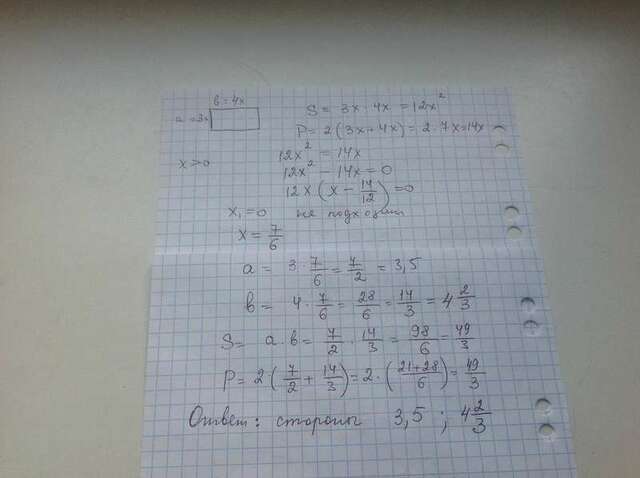 в = 4x
a = 3x
S = 3x · 4x = 12x²
P = 2(3x + 4x) = 2 · 7x = 14x
x > 0
12x² = 14x
12x² - 14x = 0
12x(x - 14/12) = 0
x₁ = 0 не подходит
x = 7/6
a = 3 · 7/6 = 7/2 = 3,5
в = 4 · 7/6 = 28/6 = 14/3 = 4 2/3
S = a · в = 7/2 · 14/3 = 98/6 = 49/3
P = 2(7/2 + 14/3) = 2 · (21+28/6) = 49/3
Ответ: стороны 3,5 ; 4 2/3